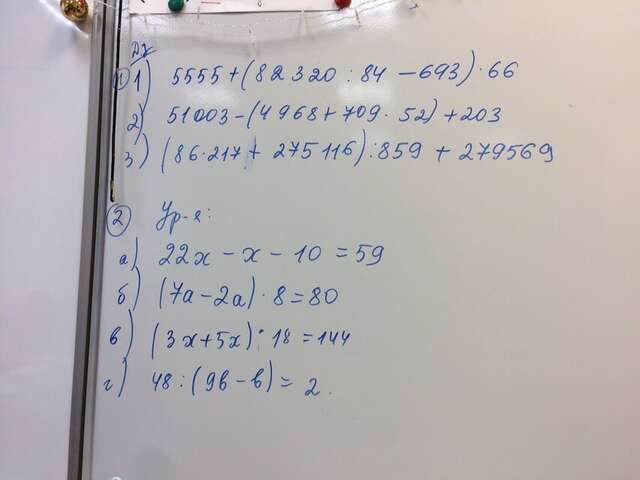 Дз
① 1) 5555 + (82320 : 84 – 693) · 66
2) 51003 – (4968 + 709 · 52) + 203
3) (86 · 217 + 275116) : 859 + 279569
② Ур-я:
а) 22x – x – 10 = 59
б) (7a – 2a) · 8 = 80
в) (3x + 5x) : 18 = 144
г) 48 : (9в – в) = 2.